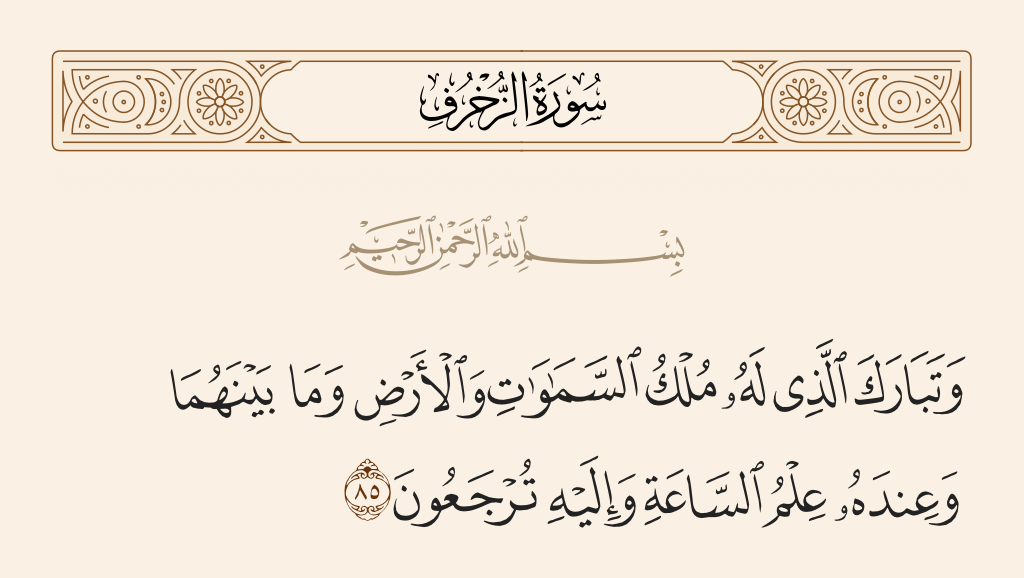 سُورَةُ الزُّخْرُفِ
بِسْمِ ٱللَّهِ ٱلرَّحْمَٰنِ ٱلرَّحِيمِ
وَتَبَارَكَ ٱلَّذِى لَهُۥ مُلْكُ ٱلسَّمَٰوَٰتِ وَٱلْأَرْضِ وَمَا بَيْنَهُمَا
وَعِندَهُۥ عِلْمُ ٱلسَّاعَةِ وَإِلَيْهِ تُرْجَعُونَ ٨٥